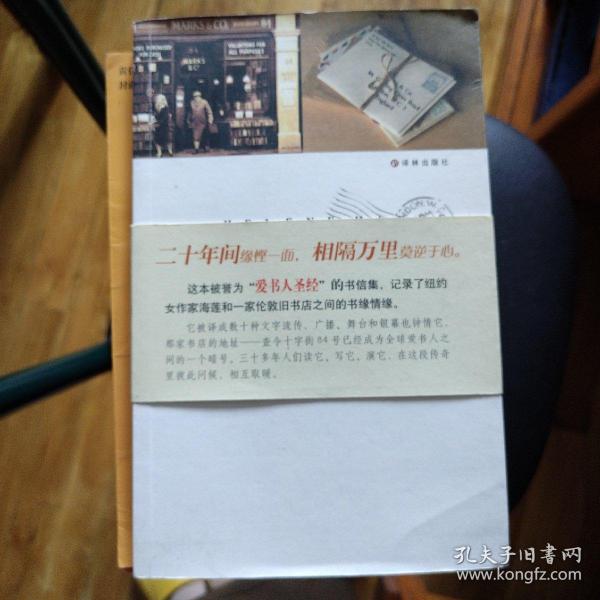 MARKS & CO.
84
MARKS
& CO
& Co.
England
译林出版社
HELENE H
LONDON W.C.
二十年间缘悭一面，相隔万里莫逆于心。
这本被誉为“爱书人圣经”的书信集，记录了纽约
女作家海莲和一家伦敦旧书店之间的书缘情缘。
它被译成数十种文字流传，广播、舞台和银幕也钟情它，
那家书店的地址——查令十字街84号已经成为全球爱书人之
间的一个暗号，三十多年人们读它，写它，演它，在这段传奇
里彼此问候，相互取暖。
孔夫子旧书网
www.kongfz.com